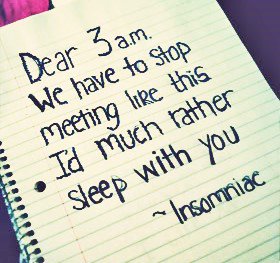 Dear 3 a.m.
We have to stop
meeting like this
I'd much rather
sleep with you
~ Insomniac